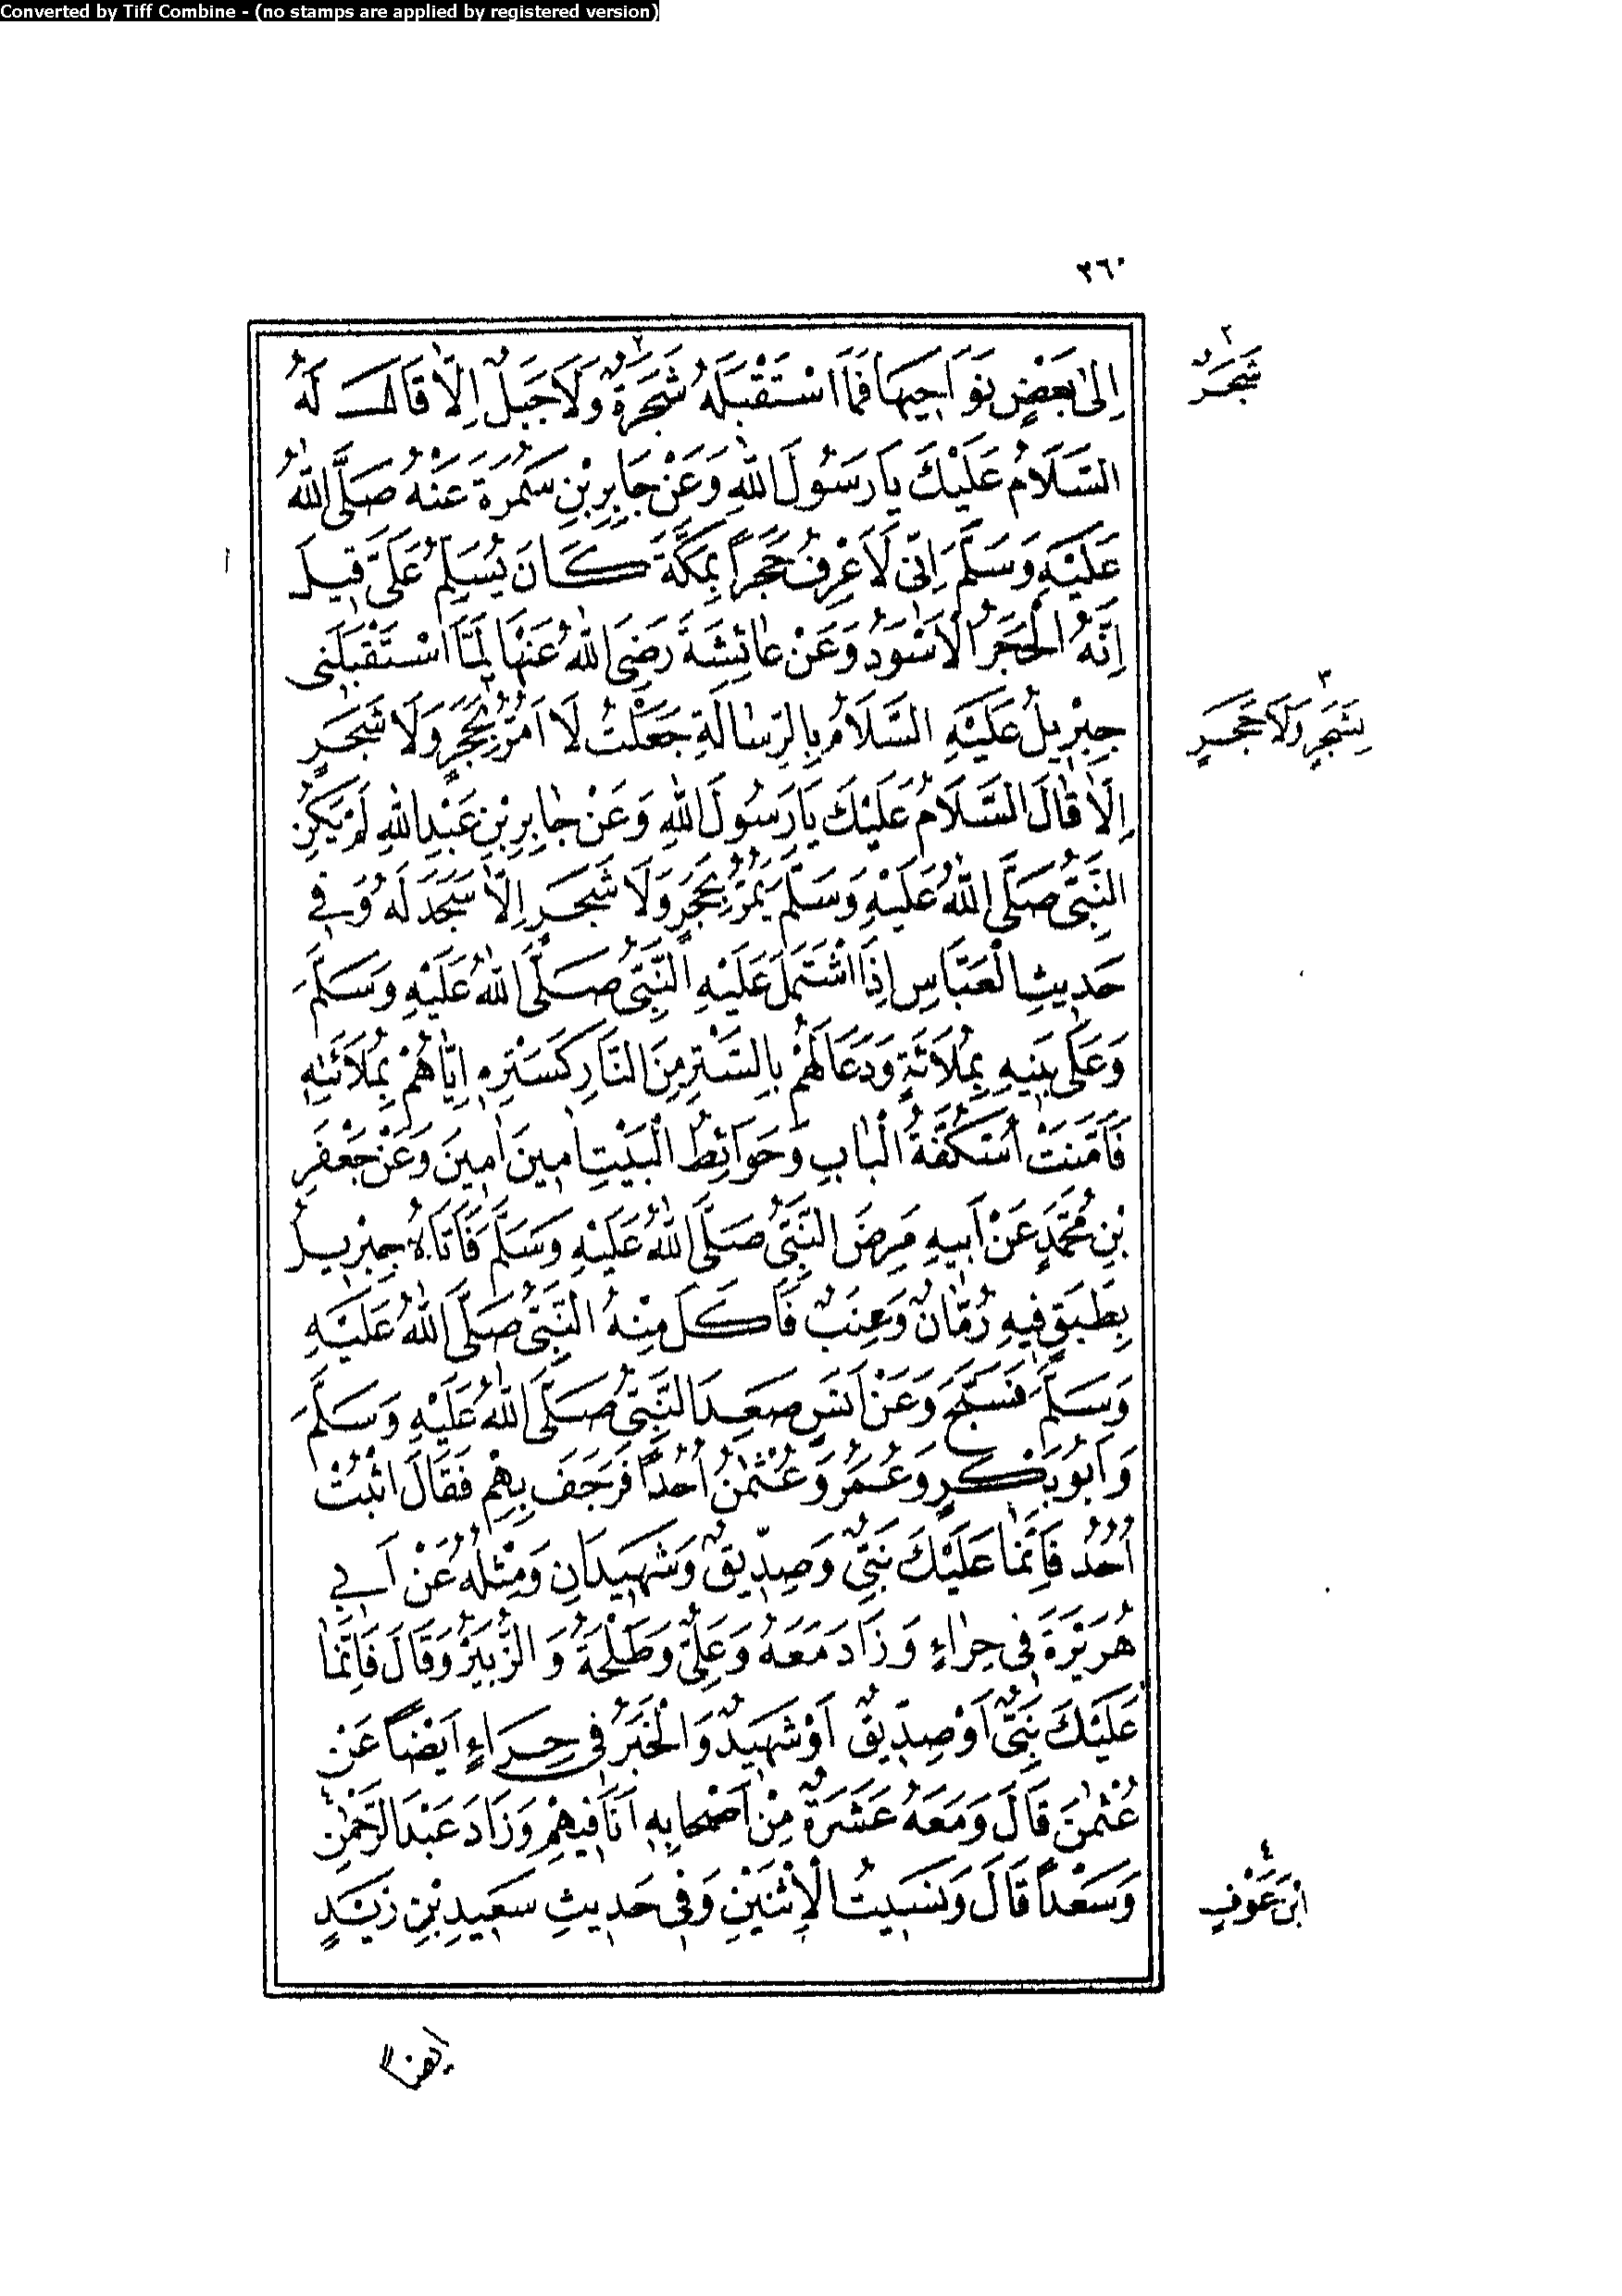 Converted by Tiff Combine - (no stamps are applied by registered version)
٣٦٠
اِلىٰ بَعْضِ نَوَاحِيهَا فَمَا اسْتَقْبَلَهُ شَجَرَةٌ٢ وَلَا جَبَلٌ اِلَّا قَالَ لَهُ
شَجَرٌ ٢
السَّلَامُ عَلَيْكَ يَا رَسُولَ اللّٰهِ وَعَنْ جَابِرِ بْنِ سَمُرَةَ عَنْهُ صَلَّى اللّٰهُ
عَلَيْهِ وَسَلَّمَ اِنّى لَاَعْرِفُ حَجَرًا بِمَكَّةَ كَانَ يُسَلِّمُ عَلَىَّ قِيلَ
اِنَّهُ الْحَجَرُ الْاَسْوَدُ وَعَنْ عَائِشَةَ رَضِىَ اللّٰهُ عَنْهَا لَمَّا اسْتَقْبَلَنِى
جِبْرِيلُ عَلَيْهِ السَّلَامُ بِالرِّسَالَةِ جَعَلْتُ لَا اَمُرُّ بِحَجَرٍ٣ وَلَا شَجَرٍ
بِشَجَرٍ وَلَا حَجَرٍ ٣
اِلَّا قَالَ السَّلَامُ عَلَيْكَ يَا رَسُولَ اللّٰهِ وَعَنْ جَابِرِ بْنِ عَبْدِ اللّٰهِ لَمْ يَكُنِ
النَّبِىُّ صَلَّى اللّٰهُ عَلَيْهِ وَسَلَّمَ يَمُرُّ بِحَجَرٍ وَلَا شَجَرٍ اِلَّا سَجَدَ لَهُ وَفِى
حَدِيثِ الْعَبَّاسِ اِذَا اشْتَمَلَ عَلَيْهِ النَّبِىُّ صَلَّى اللّٰهُ عَلَيْهِ وَسَلَّمَ
وَعَلَى بَنِيهِ بِمُلَائَةٍ وَدَعَا لَهُمْ بِالسَّتْرِ مِنَ النَّارِ كَسَتْرِهِ اِيَّاهُمْ بِمُلَائَتِهِ
فَاَمَّنَتْ اُسْكُفَّةُ الْبَابِ وَحَوَائِطُ الْبَيْتِ اٰمِينَ اٰمِينَ وَعَنْ جَعْفَرِ
بْنِ مُحَمَّدٍ عَنْ اَبِيهِ مَرِضَ النَّبِىُّ صَلَّى اللّٰهُ عَلَيْهِ وَسَلَّمَ فَاَتَاهُ جِبْرِيلُ
بِطَبَقٍ فِيهِ رُمَّانٌ وَعِنَبٌ فَاَكَلَ مِنْهُ النَّبِىُّ صَلَّى اللّٰهُ عَلَيْهِ
وَسَلَّمَ فَسَبَّحَ وَعَنْ اَنَسٍ صَعِدَ النَّبِىُّ صَلَّى اللّٰهُ عَلَيْهِ وَسَلَّمَ
وَاَبُو بَكْرٍ وَعُمَرُ وَعُثْمٰنُ اُحُدًا فَرَجَفَ بِهِمْ فَقَالَ اثْبُتْ
اُحُدُ فَاِنَّمَا عَلَيْكَ نَبِىٌّ وَصِدِّيقٌ وَشَهِيدَانِ وَمِثْلُهُ عَنْ اَبِى
هُرَيْرَةَ فِى حِرَاءٍ وَزَادَ مَعَهُ وَعَلِىٌّ وَطَلْحَةُ وَالزُّبَيْرُ وَقَالَ فَاِنَّمَا
عَلَيْكَ نَبِىٌّ اَوْ صِدِّيقٌ اَوْ شَهِيدٌ وَالْخَبَرُ فِى حِرَاءٍ اَيْضًا عَنْ
عُثْمٰنَ قَالَ وَمَعَهُ عَشَرَةٌ مِنْ اَصْحَابِهِ اَنَا فِيهِمْ وَزَادَ عَبْدَ الرَّحْمٰنِ٤
وَسَعْدًا قَالَ وَنَسِيتُ الْاِثْنَيْنِ وَفِى حَدِيثِ سَعِيدِ بْنِ زَيْدٍ
ابْنَ عَوْفٍ ٤